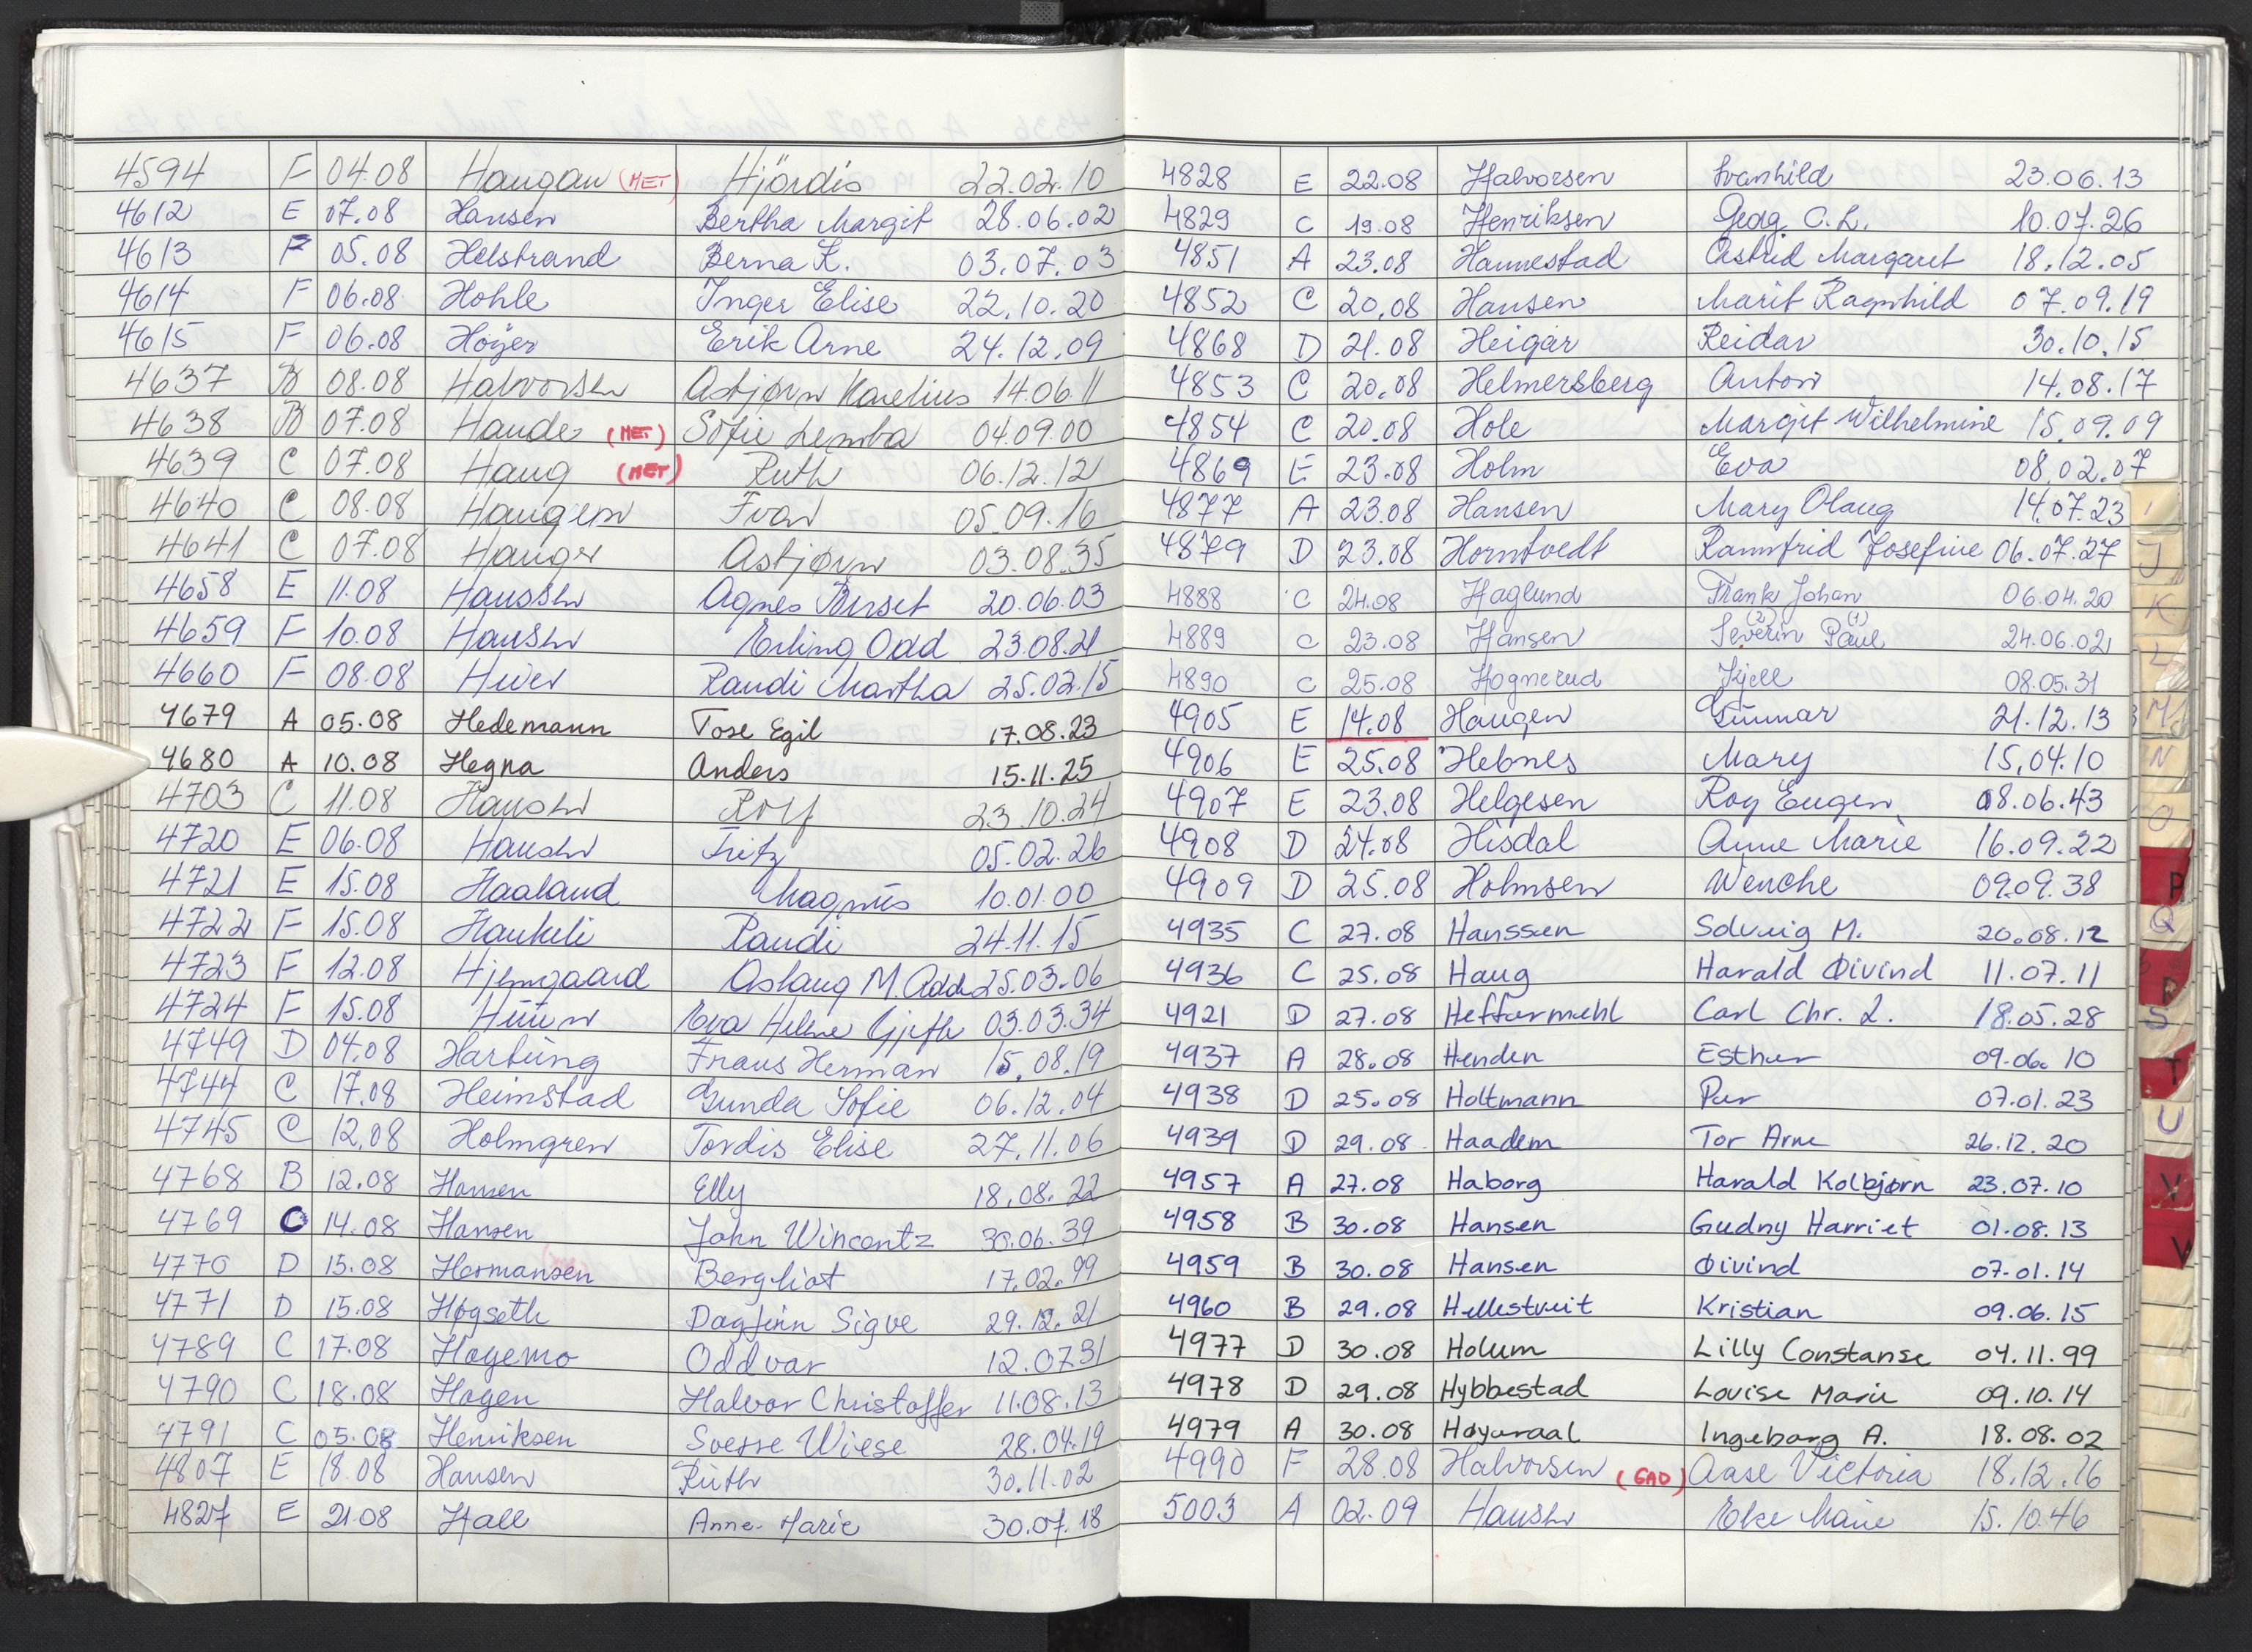 4594 F 04.08 Haugan (MET) Hjördis 22.02.10
4612 E 07.08 Hansen Bertha Margit 28.06.02
4613 F 05.08 Helstrand Berna K. 03.07.03
4614 F 06.08 Hohle Inger Elise 22.10.20
4615 F 06.08 Höyer Erik Arne 24.12.09
4637 B 08.08 Halvorsen Asbjørn Kornelius 14.06.11
4638 B 07.08 Hande (MET) Sofie 04.09.00
4639 C 07.08 Haug (MET) Ruth 06.12.12
4640 C 08.08 Haugen Ivar 05.09.16
4641 C 07.08 Hauger Asbjørn 03.08.35
4658 E 11.08 Hanssen Agnes Birset 20.06.03
4659 F 10.08 Hansen Erling Odd 23.08.21
4660 F 08.08 Randi Martha 25.02.15
4679 A 05.08 Hedemann Tore Egil 17.08.23
4680 A 10.08 Hegna Anders 15.11.25
4703 C 11.08 Hansen Rolf 23.10.24
4720 E 06.08 Hansen Fritz 05.02.26
4721 E 15.08 Haaland Magnus 10.01.00
4722 F 15.08 Haukeli Randi 24.11.15
4723 F 12.08 Hjemgaard Aslaug M. Add. 25.03.06
4724 F 15.08 Eva Helene 03.03.34
4749 D 04.08 Hartung Frans Herman 15.08.19
4744 C 17.08 Heimstad Gunda Sofie 06.12.04
4745 C 12.08 Holmgren Tordis Elise 27.11.06
4768 B 12.08 Hansen Elly 18.08.22
4769 C 14.08 Hansen John Wincentz 30.06.39
4770 D 15.08 Hermansen Bergliot 17.02.99
4771 D 15.08 Høgseth Dagfinn Sigve 29.12.21
4789 C 17.08 Hagemo Oddvar 12.07.31
4790 C 18.08 Hagen Halvor Christoffer 11.08.13
4791 C 05.08 Henriksen Sverre Wiese 28.04.19
4807 E 18.08 Hansen Ruth 30.11.02
4827 E 21.08 Hall Anne-Marie 30.07.18
4828 E 22.08 Halvorsen Svanhild 23.06.13
4829 C 19.08 Henriksen Georg C.L. 10.07.26
4851 A 23.08 Hannestad Astrid Margaret 18.12.05
4852 C 20.08 Hansen Marit Ragnhild 07.09.19
4868 D 21.08 Heigar Reidar 30.10.15
4853 C 20.08 Helmersberg Anton 14.08.17
4854 C 20.08 Hole Margit Wilhelmine 15.09.09
4869 E 23.08 Holm Eva 08.02.07
4877 A 23.08 Hansen Mary Olaug 14.07.23
4879 D 23.08 Horntvedt Rannfrid Josefine 06.07.27
4888 C 24.08 Haglund Frank Johan 06.04.20
4889 C 23.08 Hansen Severin (2) Paul (1) 24.06.02
4890 C 25.08 Hognerud Kjell 08.05.31
4905 E 14.08 Haugen Gunnar 21.12.13
4906 E 25.08 Hebnes Mary 15.04.10
4907 E 23.08 Helgesen Roy Eugen 08.06.43
4908 D 24.08 Hisdal Anne Marie 16.09.22
4909 D 25.08 Holmsen Wenche 09.09.38
4935 C 27.08 Hanssen Solveig M. 20.08.12
4936 C 25.08 Haug Harald Øivind 11.07.11
4921 D 27.08 Heffermehl Carl Chr. L. 18.05.28
4937 A 28.08 Henden Esther 09.06.10
4938 D 25.08 Holtmann Per 07.01.23
4939 D 29.08 Haadem Tor Arne 26.12.20
4957 A 27.08 Haborg Harald Kolbjørn 23.07.10
4958 B 30.08 Hansen Gudny Harriet 01.08.13
4959 B 30.08 Hansen Øivind 07.01.14
4960 B 29.08 Hellestveit Kristian 09.06.15
4977 D 30.08 Holum Lilly Constanse 04.11.99
4978 D 29.08 Hybbestad Lovise Marie 09.10.14
4979 A 30.08 Høyeraal Ingeborg A. 18.08.02
4990 F 28.08 Halvorsen (GAD) Aase Victoria 18.12.16
5003 A 02.09 Hansen Elise Marie 15.10.46
J
K
L
M
N
O
P
Q
R
S
T
U
V